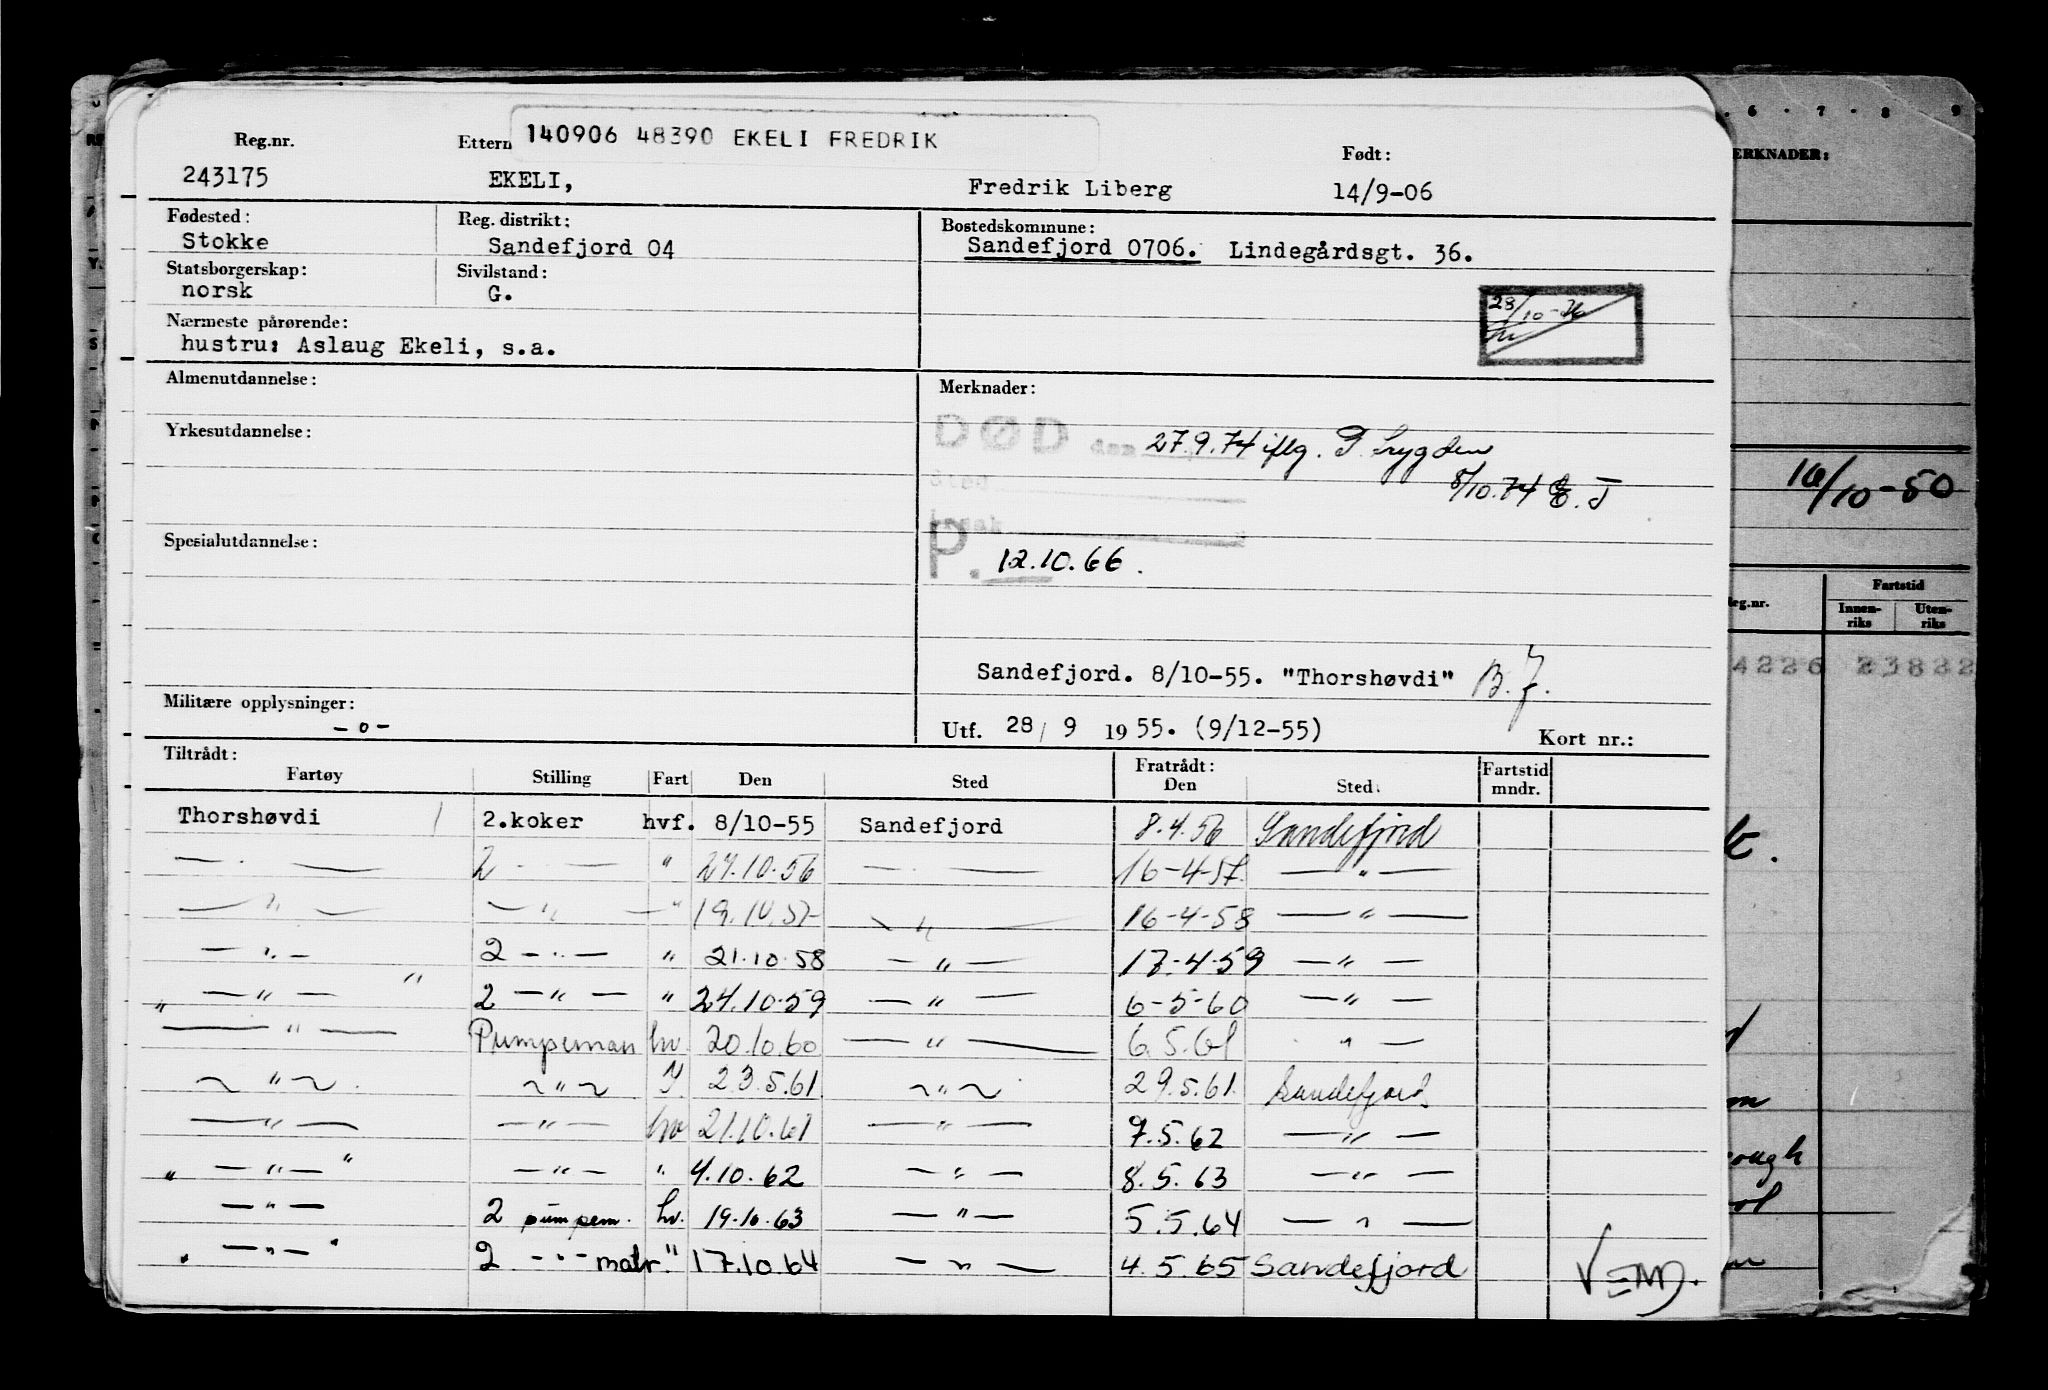 140906 48390 EKELI FREDRIK
Reg.nr. Ettern Født:
243175 EKELI, Fredrik Liberg 14/9-06
Fødested: Reg. distrikt: Bostedskommune:
Stokke Sandefjord 04 Sandefjord 0706. Lindegårdsgt. 36.
Statsborgerskap: Sivilstand:
norsk G.
Nærmeste pårørende:
hustru: Aslaug Ekeli, s.a.
Almenutdannelse: Merknader:
Yrkesutdannelse: DØD den 27.9.74 iflg. Trygden
8/10.74 E.J
Spesialutdannelse: P. 12.10.66.
Sandefjord. 8/10-55. "Thorshøvdi" B.J.
Militære opplysninger:
-o- Utf. 28/ 9 1955. (9/12-55) Kort nr.:
Tiltrådt: Fratrådt: Fartstid
Fartøy Stilling Fart Den Sted Den Sted mndr.
Thorshøvdi 2.koker hvf. 8/10-55 Sandefjord 8.4.56 Sandefjord
— . — 2 — " 27.10.56 — . — 16-4-57. — " —
— " — — " — " 19.10.57 — " — 16-4-58 — " —
— " — 2 — " — " 21.10.58 — " — 17-4-59 — " —
" — " — " 2 — " — " 24.10.59 — " — 6-5-60 — " —
— " — Pumpeman hv. 20.10.60 — " — 6.5.61 " —
~ " ~ ~ " ~ 23.5.61 ~ " ~ 29.5.61. Sandefjord
— " — — " — hv 21.10.61 — " — 7.5.62 — " —
" — " — " — " — " 4.10.62 — " — 8.5.63 — " —
— " — 2 pumpem. hv. 19.10.63 — " — 5.5.64 — " —
" — " — " 2 - " - matr. " 17.10.64 — " — 4.5.65 Sandefjord
VEND.
6 7 8 9
ERKNADER:
16/10-50
Reg.nr. Fartstid
Innen-riks Uten-riks
4226 23822